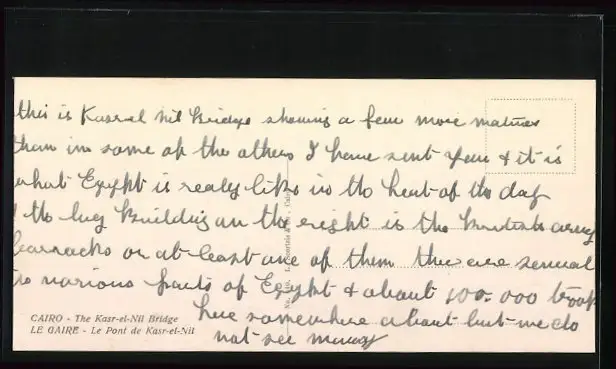 this is Kasr-el Nil Bridge showing a few more natives
than in some of the others I have sent you & it is
what Egypt is really like in the heat of the day
the big Building on the right is the British army
barracks or at least one of them there are several
in various parts of Egypt & about 100.000 troops
here somewhere about but we do
not see many
CAIRO - The Kasr-el-Nil Bridge
LE CAIRE - Le Pont de Kasr-el-Nil